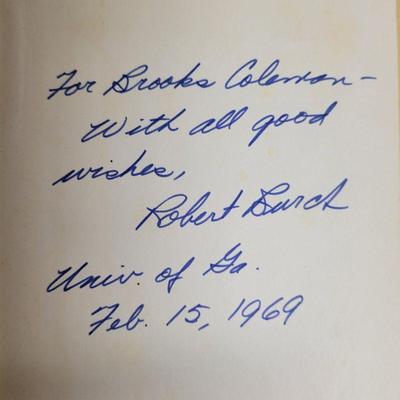 For Brooks Coleman –
With all good
wishes,
Robert Burch
Univ. of Ga.
Feb. 15, 1969